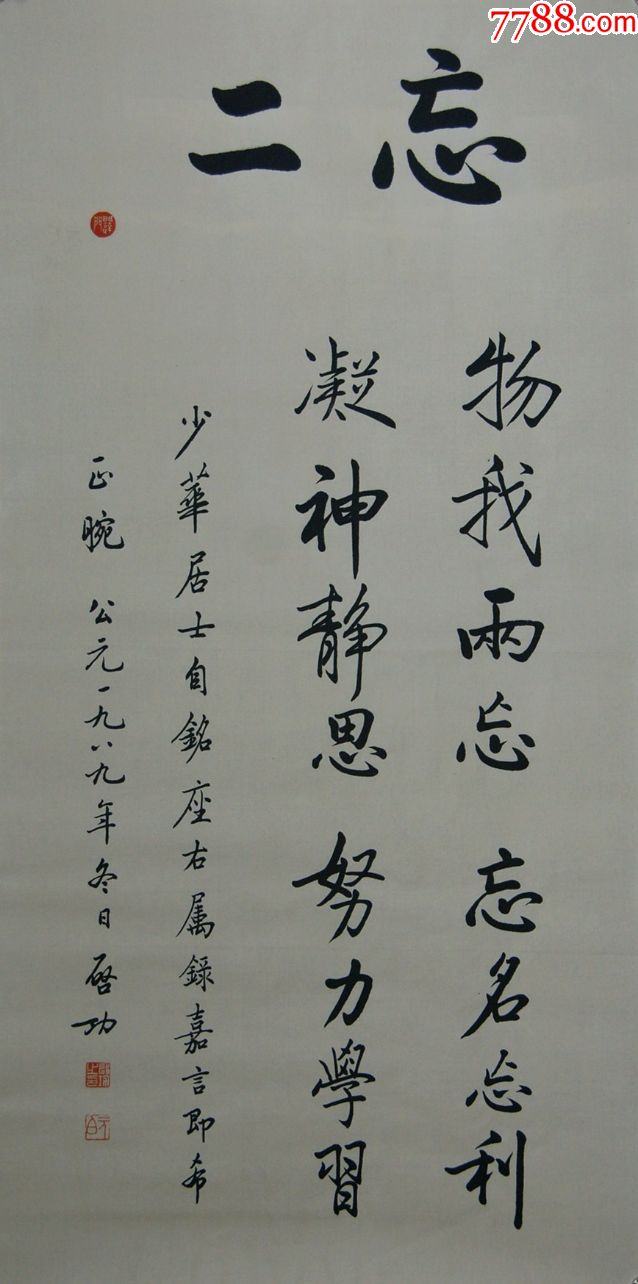 7788.com
忘二
物我兩忘 忘名忘利
凝神静思 努力學習
少華居士自銘座右属録嘉言即希
正腕 公元一九八九年冬日 啓功